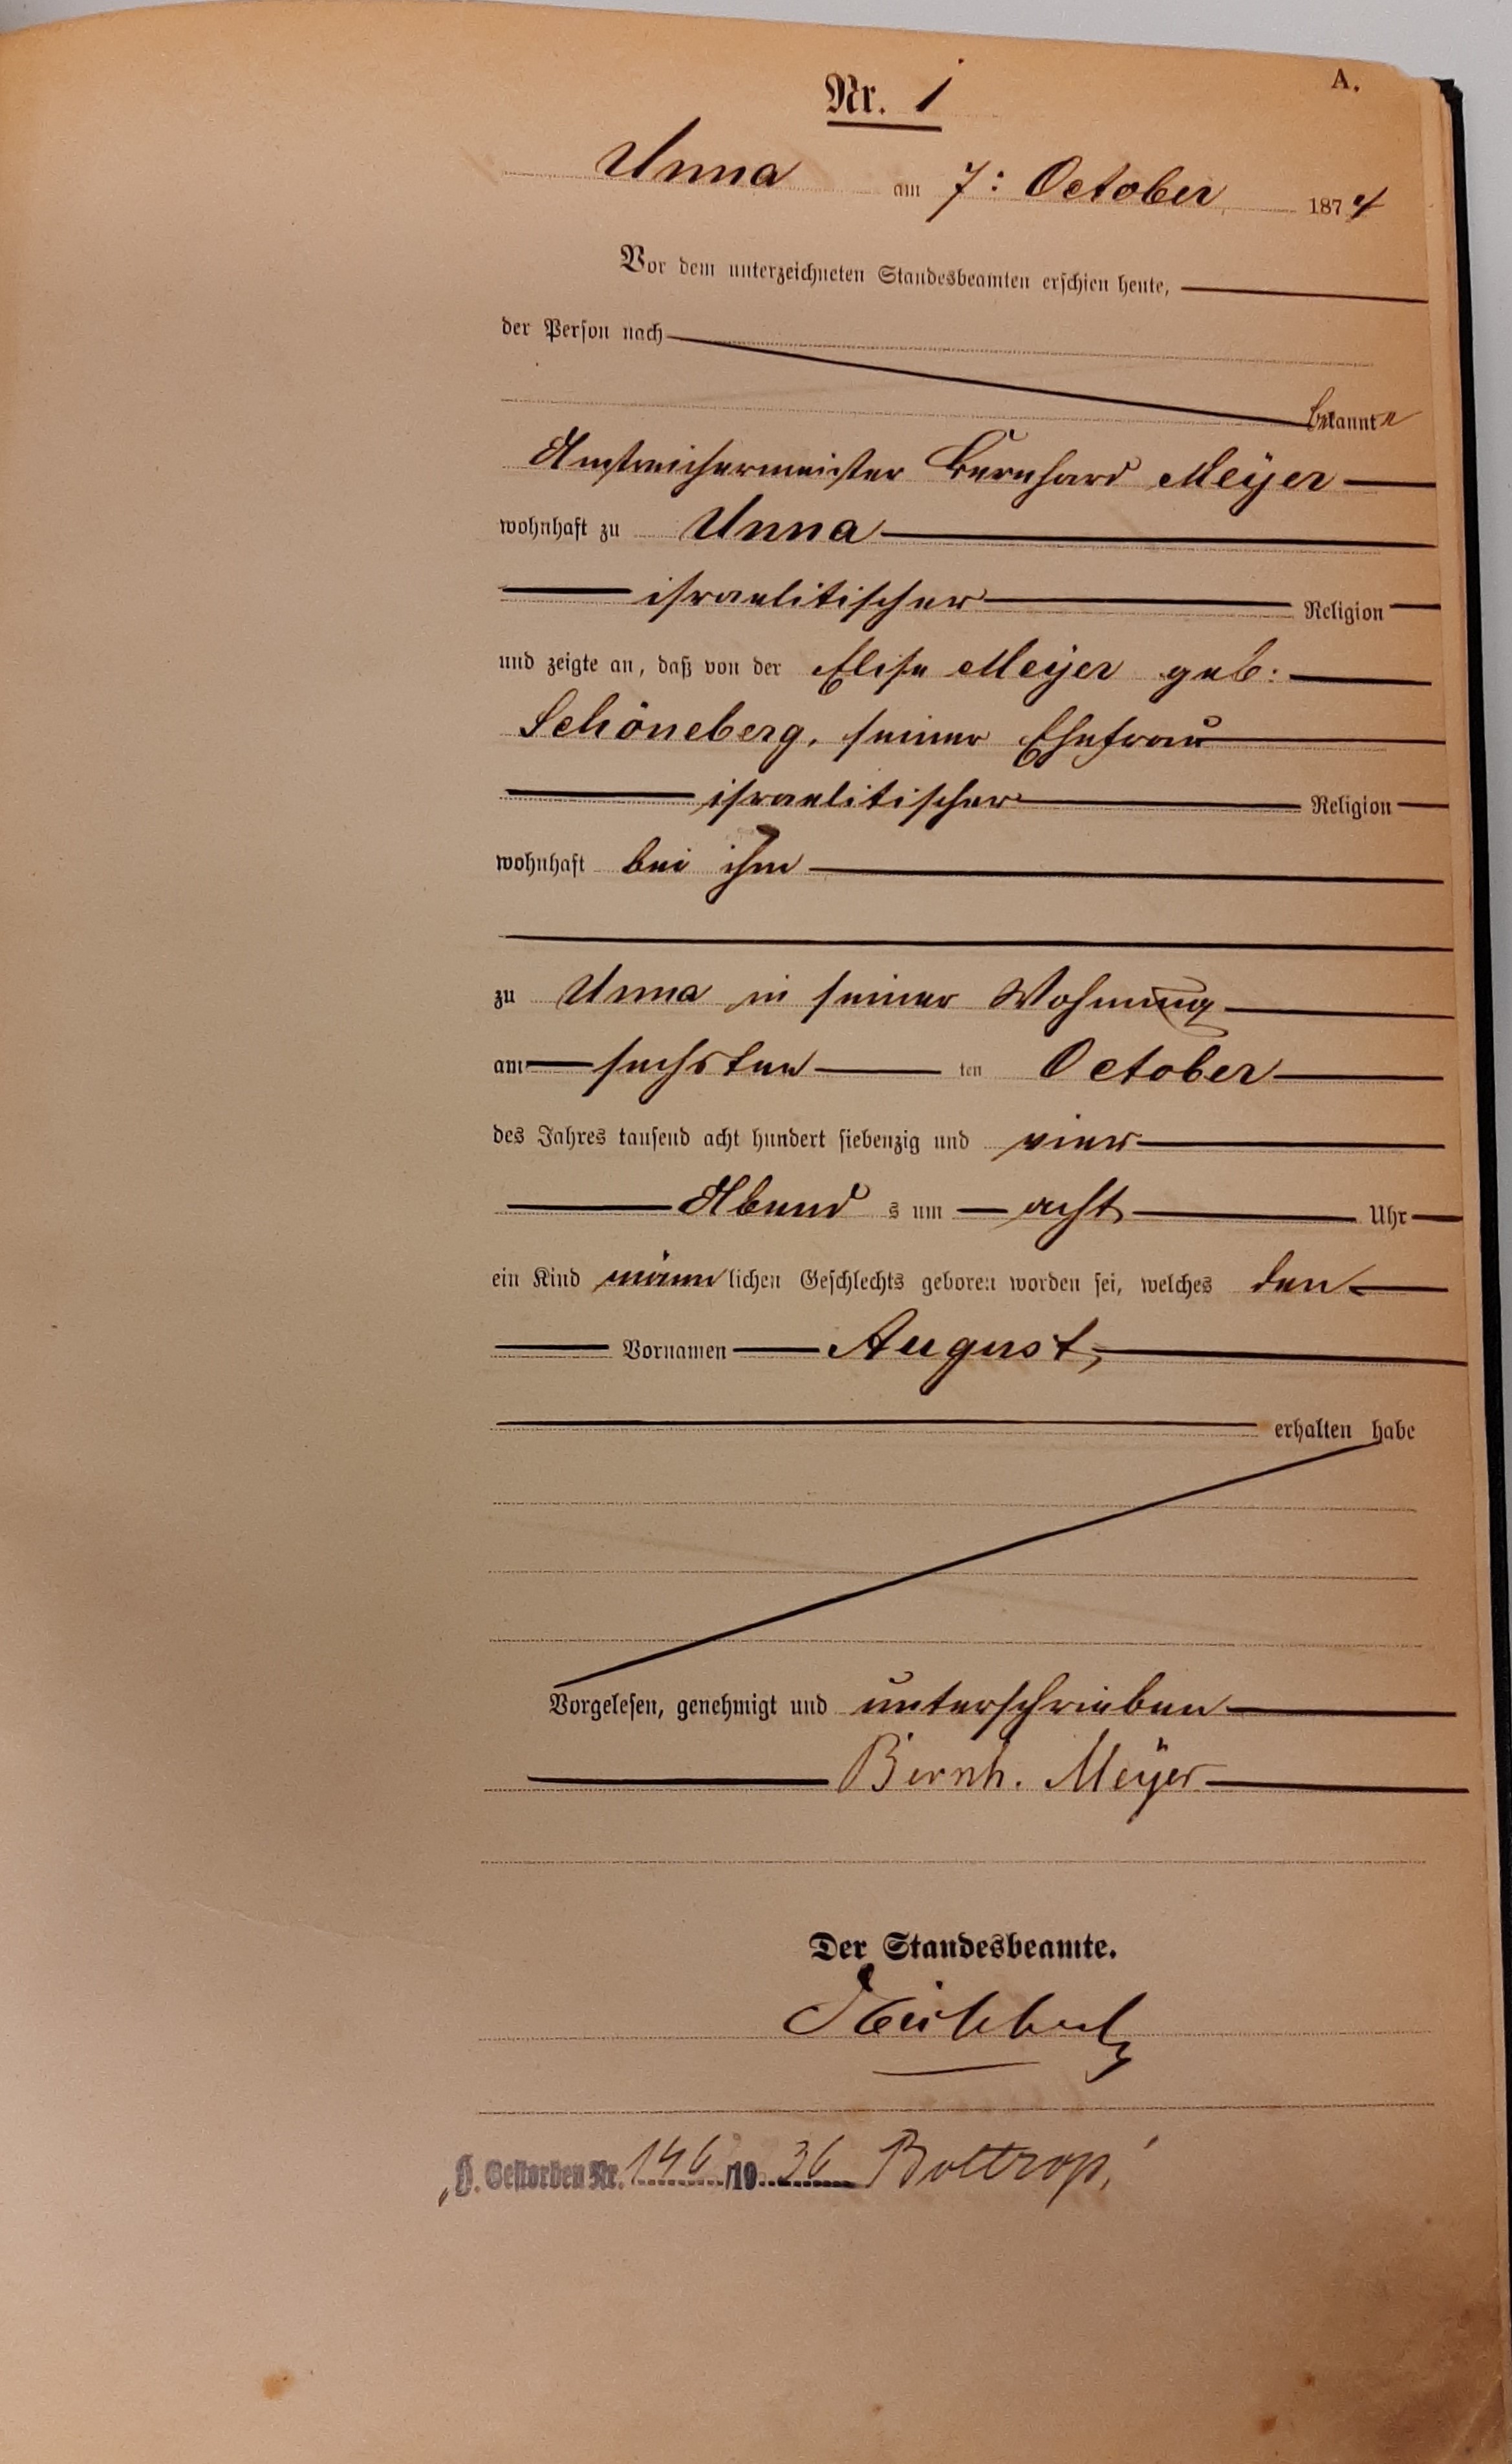 A.
Nr. 1
Unna am 7: October 1874
Vor dem unterzeichneten Standesbeamten erschien heute,
der Person nach
bekannte
Anstreichermeister Bernhard Meÿer
wohnhaft zu Unna
israelitischer Religion
und zeigte an, daß von der Elise Meÿer geb:
Schöneberg, seiner Ehefrau
israelitischer Religion
wohnhaft bei ihm
zu Unna in seiner Wohnung
am sechsten ten October
des Jahres tausend acht hundert siebenzig und vier
Abend s um acht Uhr
ein Kind männlichen Geschlechts geboren worden sei, welches den
Vornamen August,
erhalten habe
Vorgelesen, genehmigt und unterschrieben
Bernh. Meÿer
Der Standesbeamte.
Gestorben Nr. 146/1936 Bottrop,